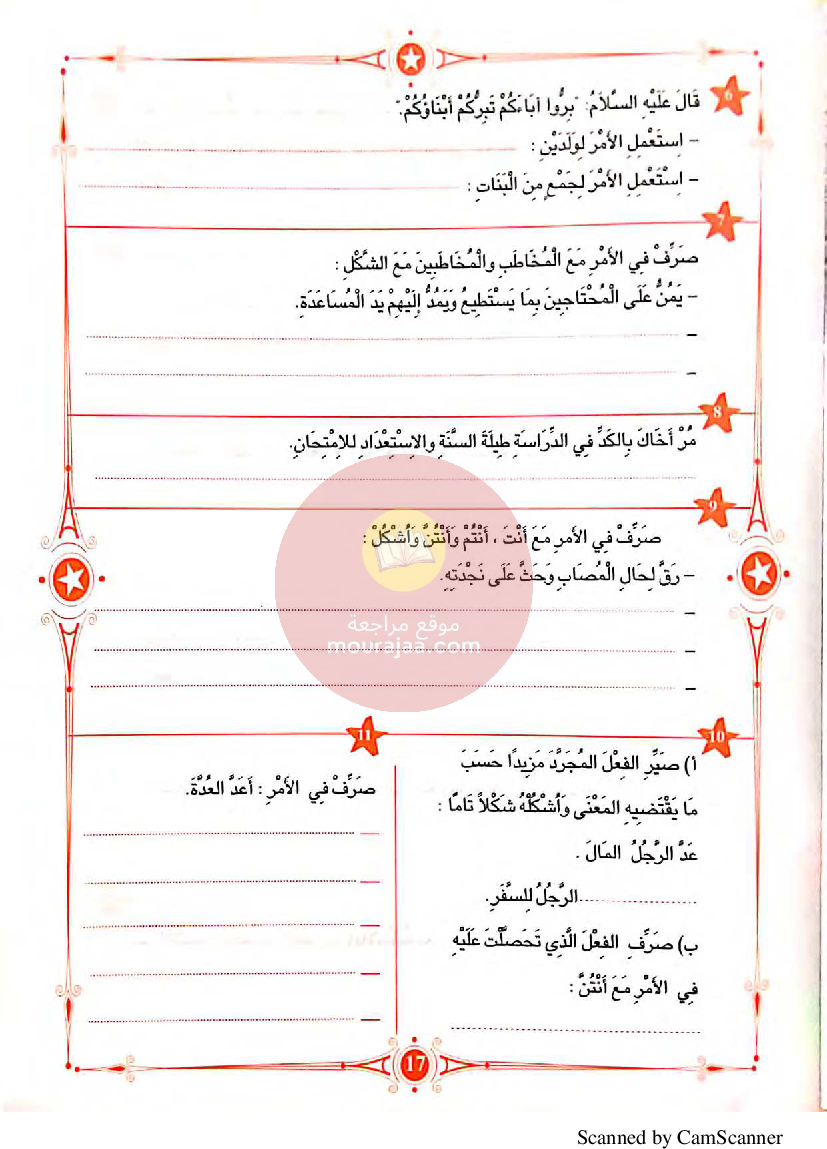 6
قَالَ عَلَيْهِ السَّلاَمُ: "بِرُّوا آبَاءَكُمْ تَبِرُّكُمْ أَبْنَاؤُكُمْ."
– اِستَعْمِلِ الأَمْرَ لِوَلَدَيْنِ :
– اِسْتَعْمِلِ الأَمْرَ لِجَمْعٍ مِنَ الْبَنَاتِ :
7
صَرِّفْ فِي الأَمْرِ مَعَ الْمُخَاطَبِ والْمُخَاطَبِينَ مَعَ الشَّكْلِ :
– يَمُنُّ عَلَى الْمُحْتَاجِينَ بِمَا يَسْتَطِيعُ وَيَمُدُّ إِلَيْهِمْ يَدَ الْمُسَاعَدَةِ.
–
–
8
مُرْ أَخَاكَ بِالكَدِّ فِي الدِّرَاسَةِ طِيلَةَ السَّنَةِ والاِسْتِعْدَادِ لِلاِمْتِحَانِ.
9
صَرِّفْ فِي الأَمرِ مَعَ أَنْتَ ، أَنْتُمْ وَأَنْتُنَّ وَاُشْكُلْ :
– رَقَّ لِحَالِ الْمُصَابِ وَحَثَّ عَلَى نَجْدَتِهِ.
–
–
–
موقع مراجعة
mourajaa.com
10
أ) صَيِّرِ الفِعْلَ المُجَرَّدَ مَزِيدًا حَسَبَ
مَا يَقْتَضِيهِ المَعْنَى وَاُشْكُلْهُ شَكْلاً تَامًّا :
عَدَّ الرَّجُلُ المَالَ .
..................... الرَّجُلُ لِلسَّفَرِ.
ب) صَرِّفِ الفِعْلَ الَّذِي تَحَصَّلْتَ عَلَيْهِ
فِي الأَمْرِ مَعَ أَنْتُنَّ :
11
صَرِّفْ فِي الأَمْرِ : أَعَدَّ العُدَّةَ.
–
–
–
–
–
17
Scanned by CamScanner